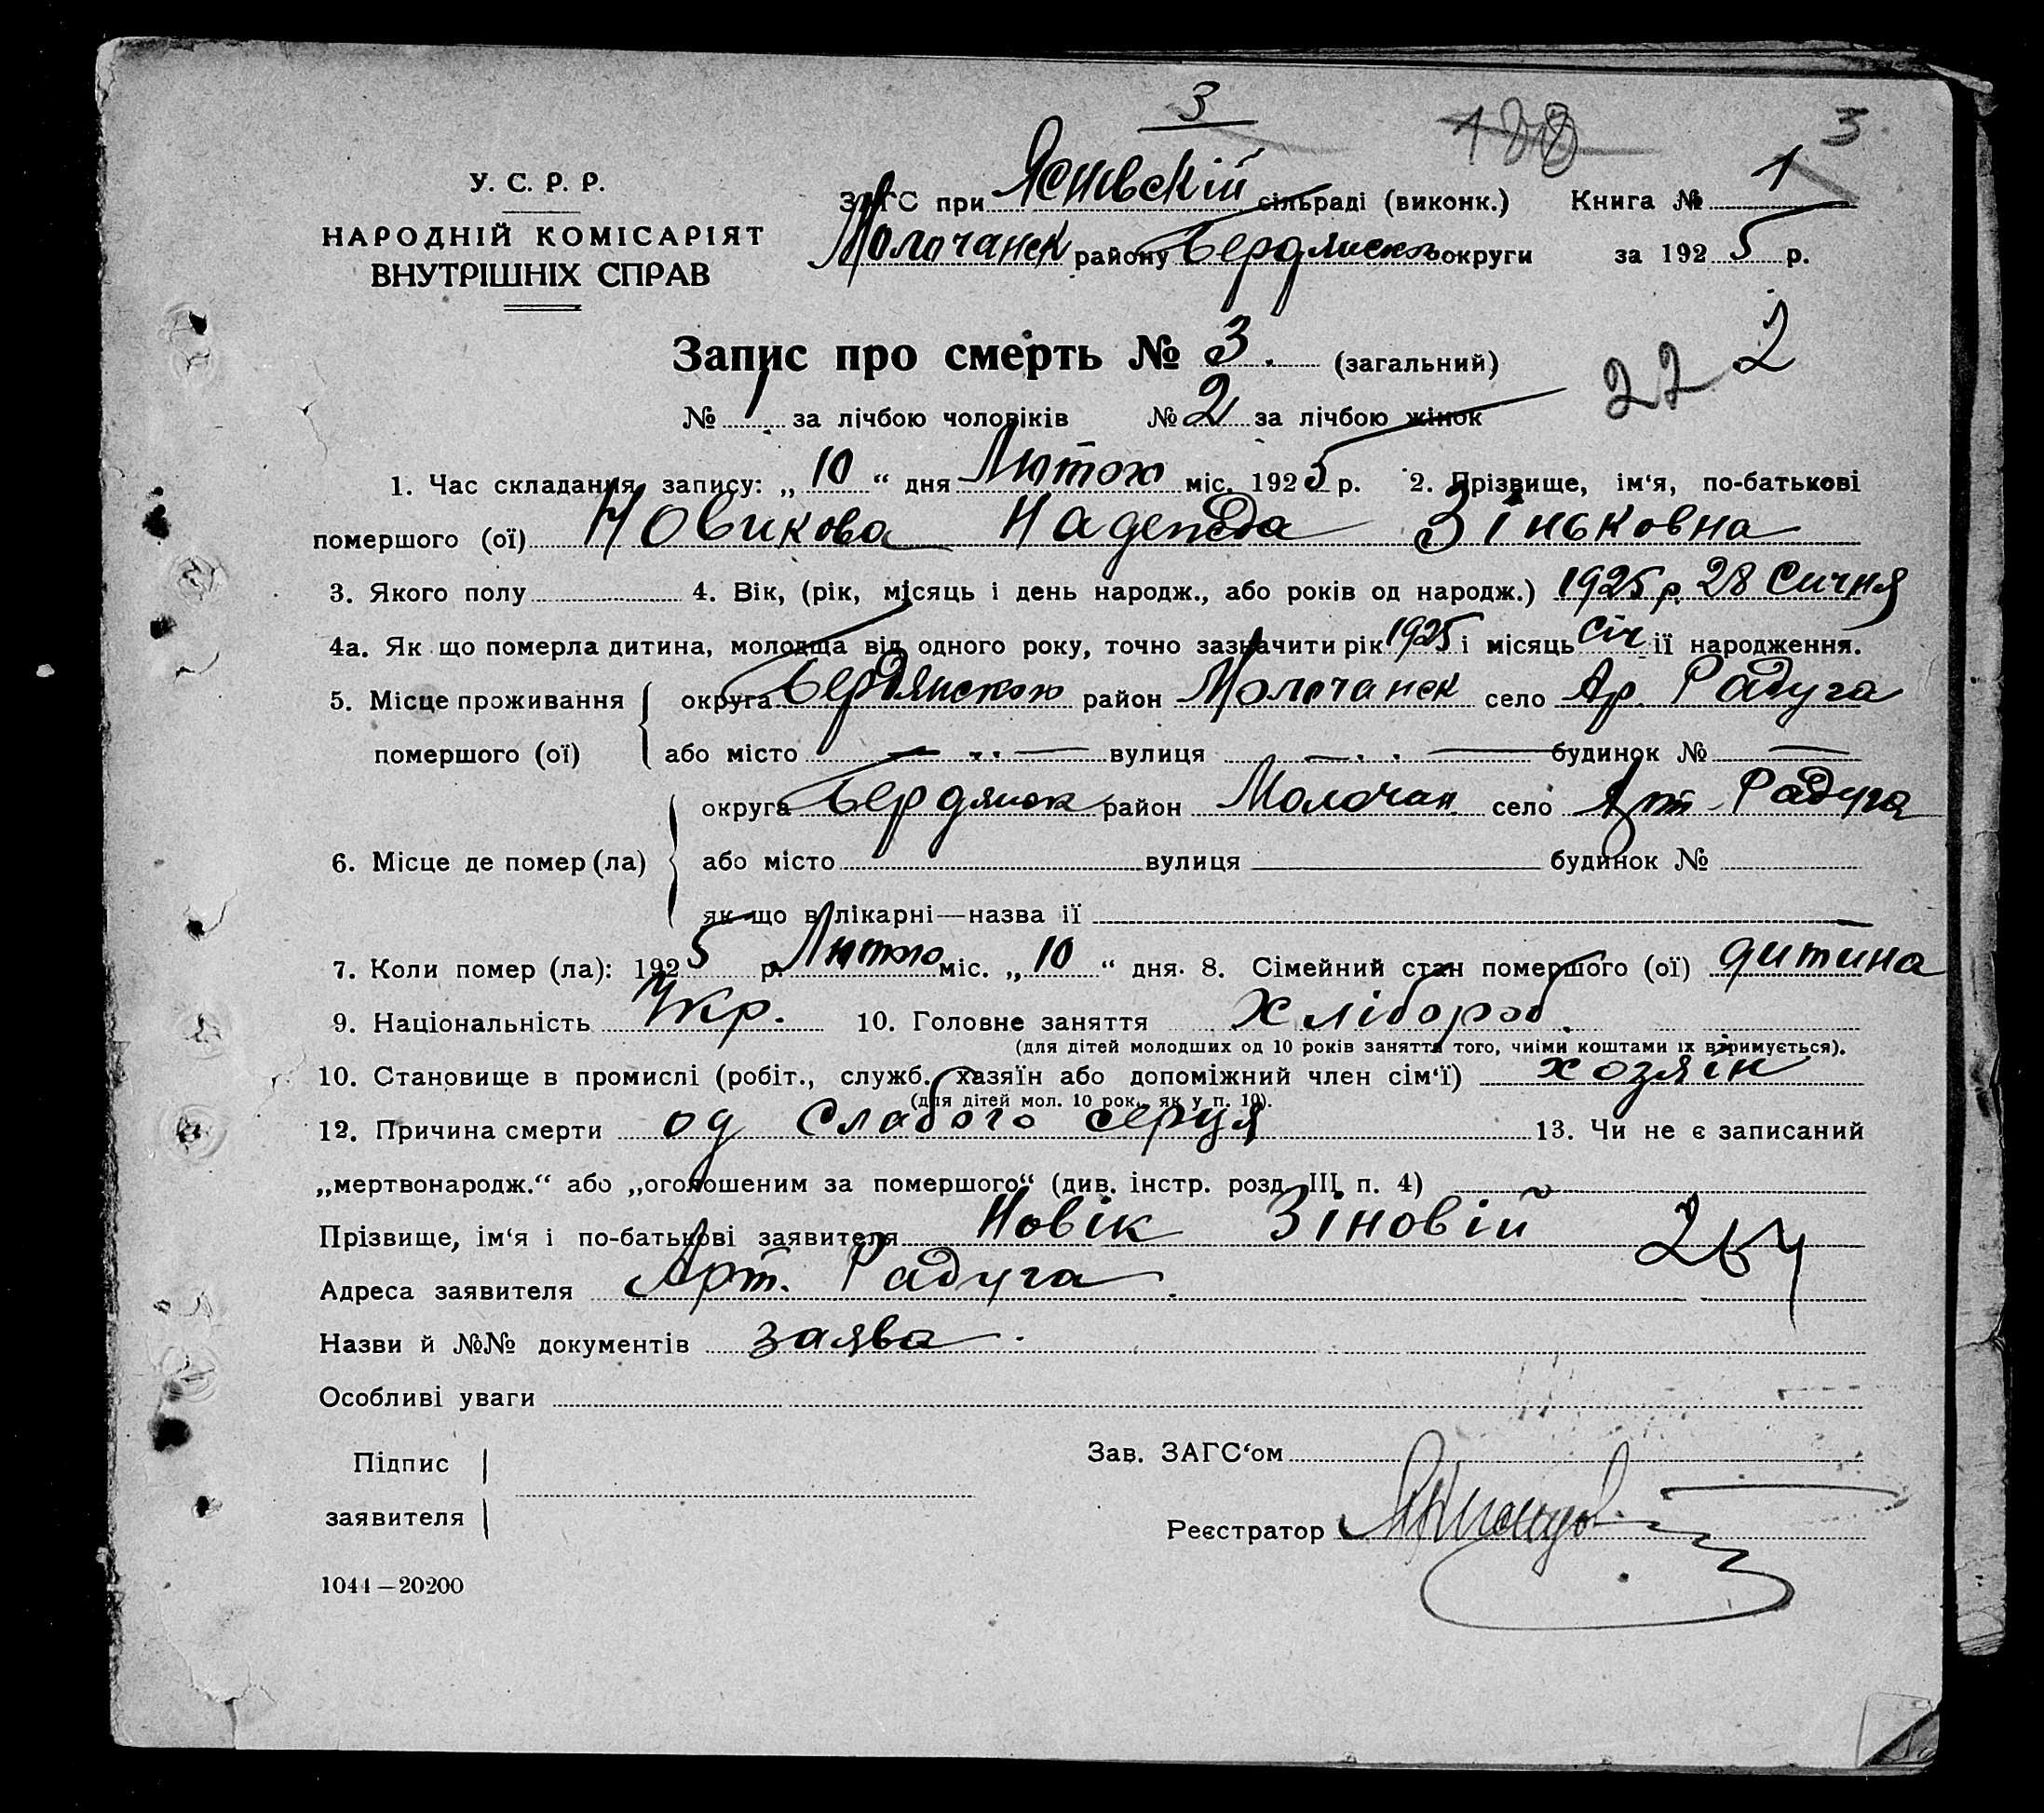 3
188 3
У. С. Р. Р.
НАРОДНІЙ КОМІСАРІЯТ
ВНУТРІШНІХ СПРАВ
ЗАГС при Яснівскій сільраді (виконк.) Книга № 1
Молочанск району Бердянської округи за 1925 р.
Запис про смерть № 3. (загальний)
22 2
№ 1 за лічбою чоловіків № 2 за лічбою жінок
1. Час складання запису: „ 10 “ дня Лютого міс. 1925 р. 2. Прізвище, ім‘я, по-батькові
помершого (ої) Новикова Надежда Зіньковна
3. Якого полу 4. Вік, (рік, місяць і день народж., або років од народж.) 1925 р. 28 Сичня
4а. Як що померла дитина, молодща від одного року, точно зазначити рік 1925 і місяць Січ її народження.
5. Місце проживання округа Бердянскою район Молочанск село Ар. Радуга
помершого (ої) або місто вулиця будинок №
округа Бердянск район Молочан. село Арт Радуга
6. Місце де помер (ла) або місто вулиця будинок №
як що в лікарні—назва її
7. Коли помер (ла): 1925 р. Лютого міс. „ 10 “ дня. 8. Сімейний стан помершого (ої) дитина
9. Національність Укр. 10. Головне заняття Хлібороб.
(для дітей молодших од 10 років заняття того, чиїми коштами їх втримується).
10. Становище в промислі (робіт., служб. хазяїн або допоміжний член сім‘ї) хозяін
(для дітей мол. 10 рок., як у п. 10).
12. Причина смерти од Слабого серця 13. Чи не є записаний
„мертвонародж.“ або „оголошеним за помершого“ (див. інстр. розд. III п. 4)
Прізвище, ім‘я і по-батькові заявителя Новік Зіновій
Адреса заявителя Арт. Радуга.
Назви й №№ документів заява.
Особливі уваги
Підпис
заявителя
Зав. ЗАГС‘ом
Реєстратор
1044—20200